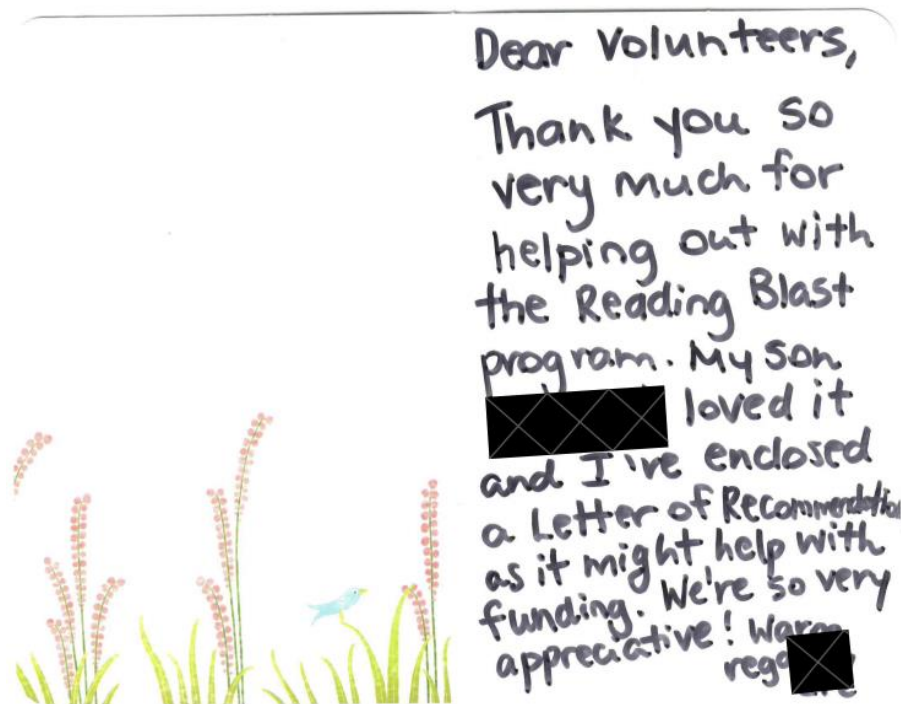 Dear Volunteers,
Thank you so
very much for
helping out with
the Reading Blast
program. My son
loved it
and I've enclosed
a Letter of Recommendation
as it might help with
funding. We're so very
appreciative! Warm